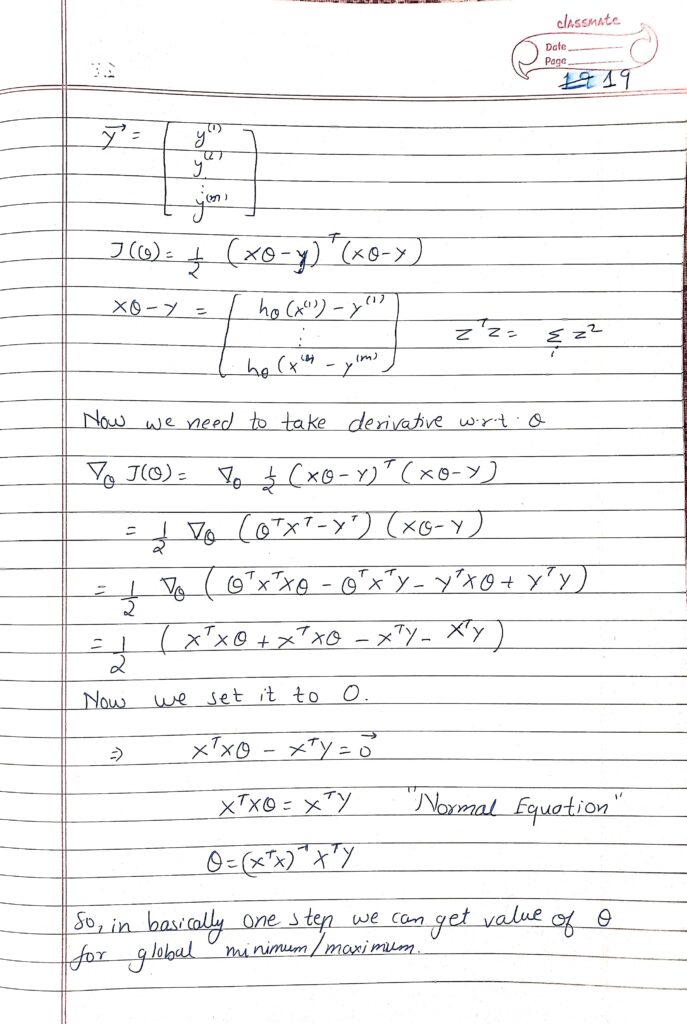 classmate
Date
Page
19 19
y⃗ = [ y⁽¹⁾
y⁽²⁾
⋮
y⁽ᵐ⁾ ]
J(θ) = 1/2 (Xθ-y)ᵀ(Xθ-Y)
Xθ-Y = [ hθ(x⁽¹⁾) - y⁽¹⁾
⋮
hθ(x⁽ᵐ⁾ - y⁽ᵐ⁾ ] zᵀz = Σᵢ z²
Now we need to take derivative w.r.t. θ
∇θ J(θ) = ∇θ 1/2 (Xθ-Y)ᵀ(Xθ-Y)
= 1/2 ∇θ (θᵀXᵀ-Yᵀ)(Xθ-Y)
= 1/2 ∇θ (θᵀXᵀXθ - θᵀXᵀY - YᵀXθ + YᵀY)
= 1/2 (XᵀXθ + XᵀXθ - XᵀY - XᵀY)
Now we set it to 0.
⇒ XᵀXθ - XᵀY = 0⃗
XᵀXθ = XᵀY "Normal Equation"
θ = (XᵀX)⁻¹XᵀY
So, in basically one step we can get value of θ
for global minimum/maximum.